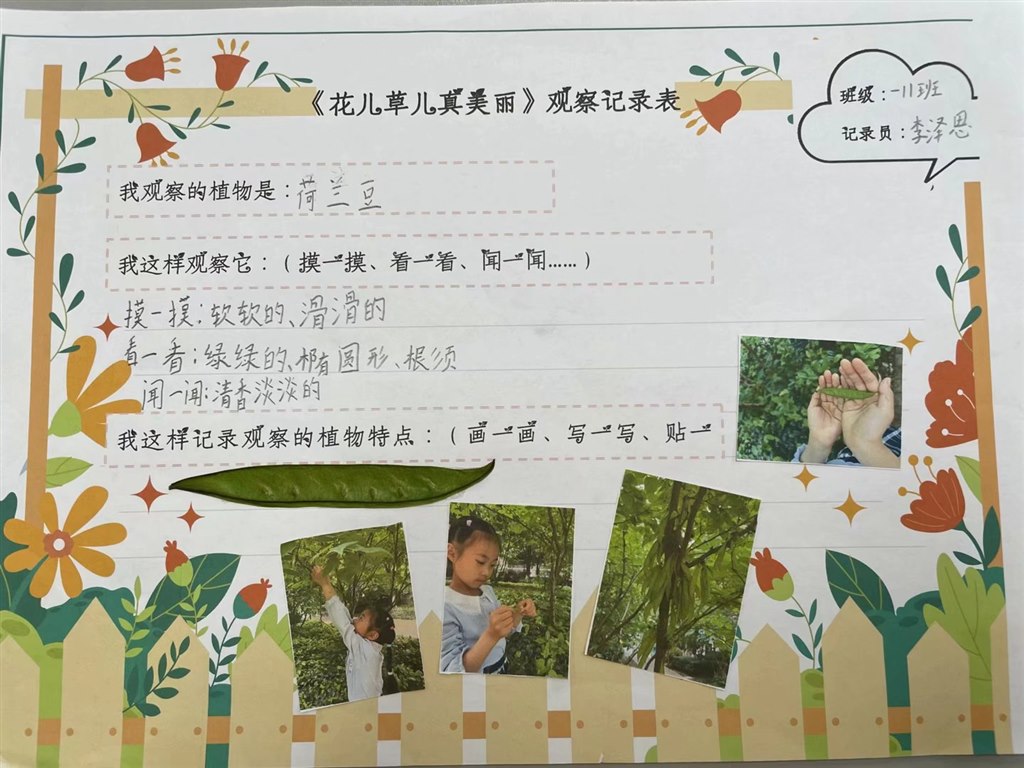 《花儿草儿真美丽》观察记录表
班级：一11班
记录员：李泽恩
我观察的植物是：荷兰豆
我这样观察它：（摸一摸、看一看、闻一闻……）
摸一摸：软软的、滑滑的
看一看：绿绿的、椭圆形、根须
闻一闻：清香淡淡的
我这样记录观察的植物特点：（画一画、写一写、贴一